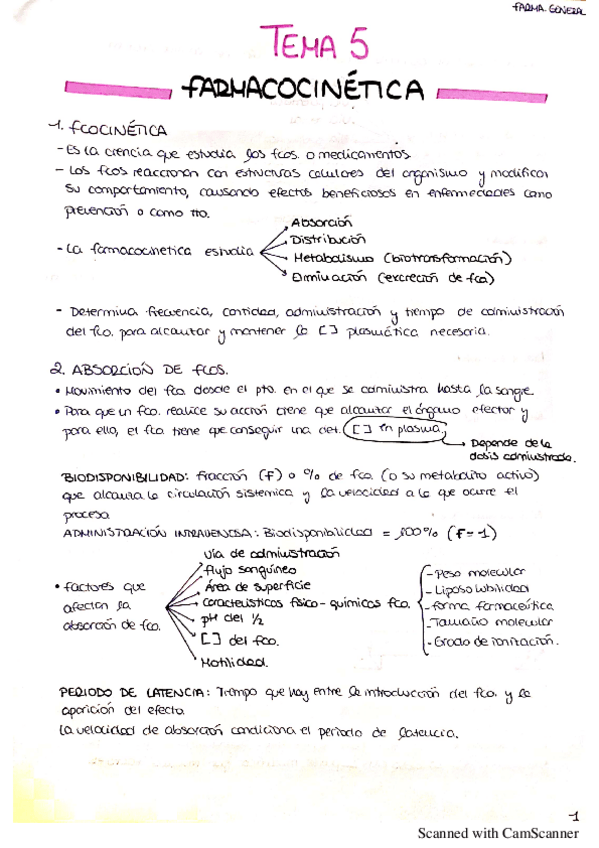 FARMA. GENERAL
TEMA 5
FARMACOCINÉTICA
1. FCOCINÉTICA
- Es la ciencia que estudia los fcos. o medicamentos
- Los fcos reaccionan con estructuras celulares del organismo y modifican
su comportamiento, causando efectos beneficiosos en enfermedades como
prevención o como tto.
- La farmacocinetica estudia
Absorción
Distribución
Metabolismo (biotransformación)
Eliminación (excreción de fco)
- Determina frecuencia, cantidad, administración y tiempo de administración
del fco. para alcanzar y mantener la [ ] plasmática necesaria.
2. ABSORCIÓN DE FCOS.
• Movimiento del fco. desde el pto. en el que se administra hasta la sangre
• Para que un fco. realice su acción tiene que alcanzar el órgano efector y
para ello, el fco. tiene que conseguir una det. [ ] en plasma.
Depende de la
dosis administrada.
BIODISPONIBILIDAD: fracción (F) o % de fco. (o su metabolito activo)
que alcanza la circulación sistemica y la velocidad a la que ocurre el
proceso
ADMINISTRACIÓN INTRAVENOSA: Biodisponibilidad = 100% (F=1)
• Factores que
afectan la
absorción de fco.
Vía de administración
Flujo sanguíneo
Área de superficie
Características físico-químicas fco.
pH del 1/2
[ ] del fco.
Motilidad.
- Peso molecular
- Liposolubilidad
- Forma farmaceútica
- Tamaño molecular
- Grado de ionización.
PERIODO DE LATENCIA: Tiempo que hay entre la introducción del fco. y la
aparición del efecto.
La velocidad de absorción condiciona el periodo de latencia.
1
Scanned with CamScanner